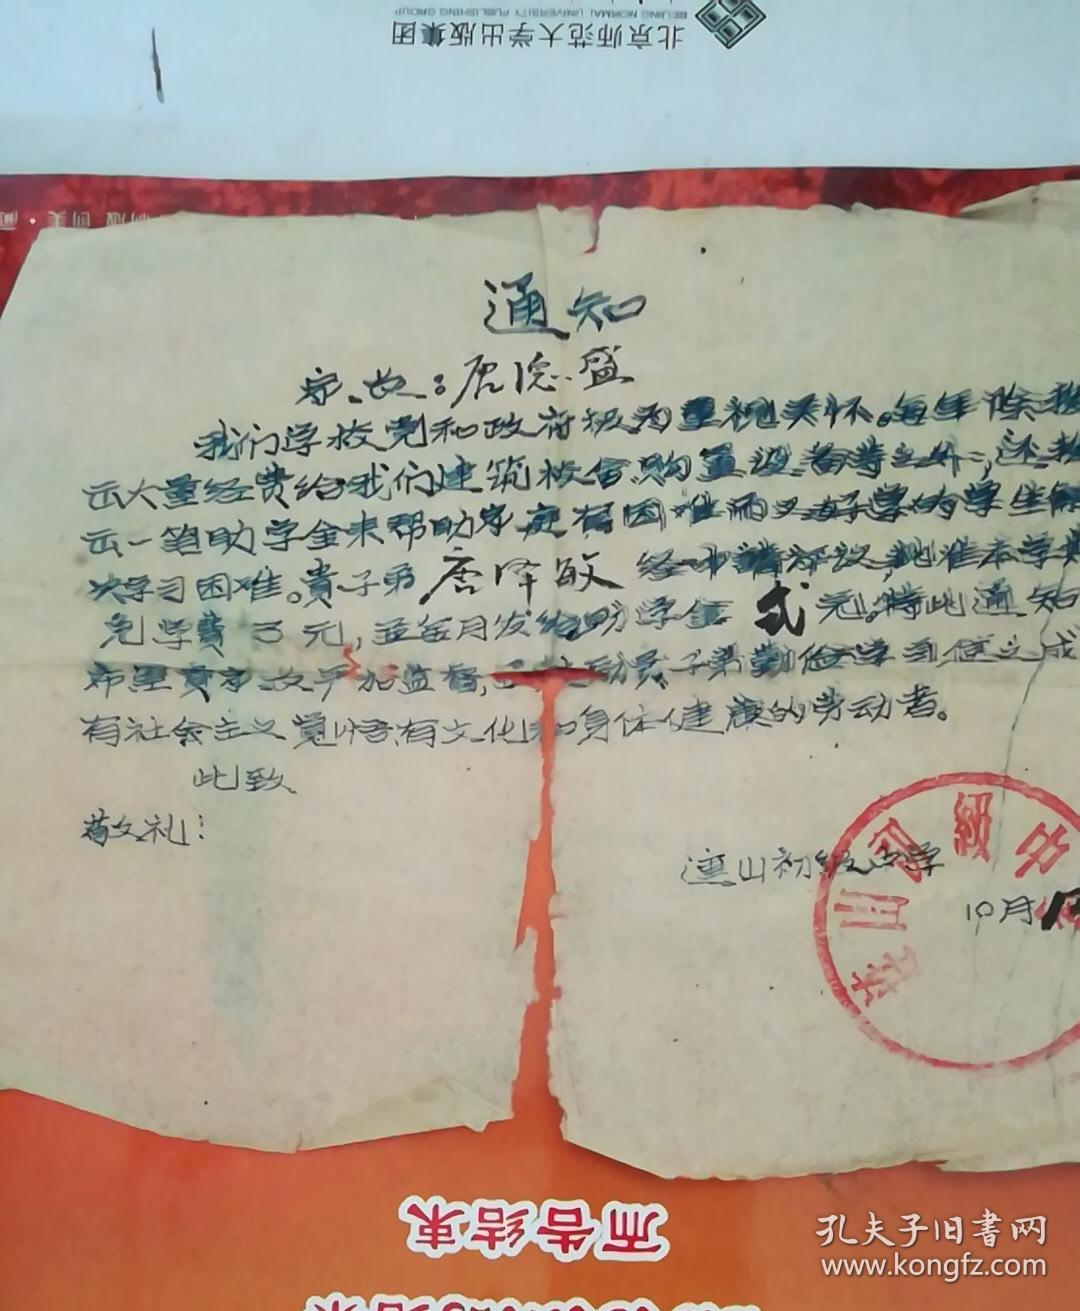 北京师范大学出版集团
BEIJING NORMAL UNIVERSITY PUBLISHING GROUP
通知
家长：唐德盛
我们学校党和政府极为重视关怀。每年除拨
出大量经费给我们建筑校舍购置设备等之外，还拨
出一笔助学金来帮助家庭有困难而又好学的学生解
决学习困难。貴子弟 唐泽敏 经申請评议，批准本学期
免学費 3 元，並每月发给助学金 弍 元。特此通知
希望貴家长严加监督，子弟勤俭学习使之成
有社会主义覚悟有文化和身体健康的劳动者。
此致
敬礼：
連山初级中学
10月
而告结束
孔夫子旧书网
www.kongfz.com